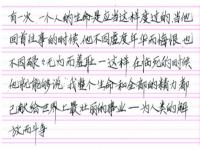 有一次 一个人的生命是应当这样度过的 当他
回首往事的时候 他不因虚度年华而悔恨 也
不因碌々无为而羞耻 一这样 在临死的时候
他就能够说 我整个生命和全部的精力都
已献给世界上最壮丽的事业—为人类的解
放而斗争